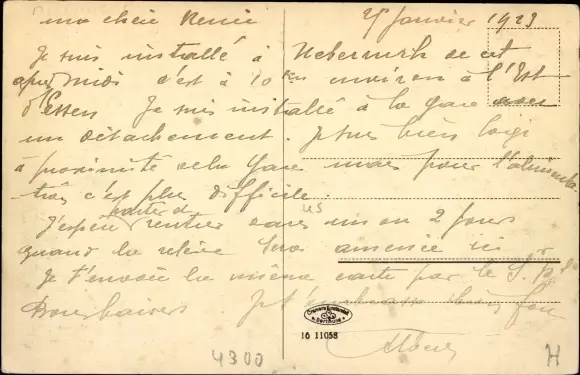 ma chère Renée 25 Janvier 1923
Je suis installé à de cet
après midi c'est à 10 km environ à l'Est
d'Essen Je suis installé à la gare avec
un détachement. Je suis bien logé
à proximité de la gare mais pour l'alimenta-
tion c'est plus difficile.
J'espère rentrer dans un ou 2 jours
quand la relève sera amenée ici
Je t'envoie la même carte par le
Bons baisers Je t'embrasse bien fou
16 11058
4300
H